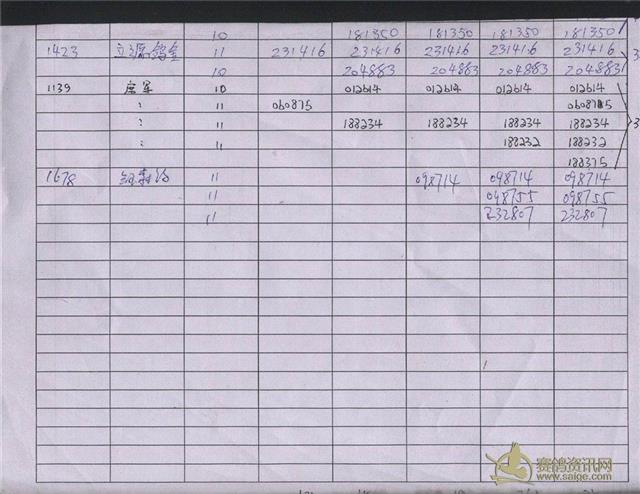 10 181350 181350 181350 181350
1423 立源鸽舍 11 231416 231416 231416 231416 231416 3
10 204883 204883 204883 204883
1139 唐军 10 012614 012614 012614 012614
: 11 060875 060875
: 11 188234 188234 188234 188234 3
: 11 188232 188232
188375
1678 11 098714 098714 098714
11 098755 098755
11 232807 232807
赛鸽资讯网
www.saige.com